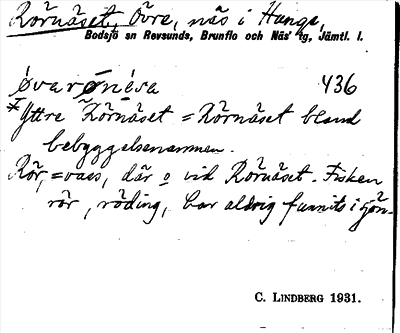 Rörnäset, Övre, näs i Hunge,
Bodsjö sn Revsunds, Brunflo och Näs' tg, Jämtl. l.
øvarǿnésa 436
Yttre Rörnäset = Rörnäset bland
bebyggelsenamnen.
Rör, = vass, där o vid Rörnäset. Fisken
rör, röding, har aldrig funnits i sjön.
C. LINDBERG 1931.